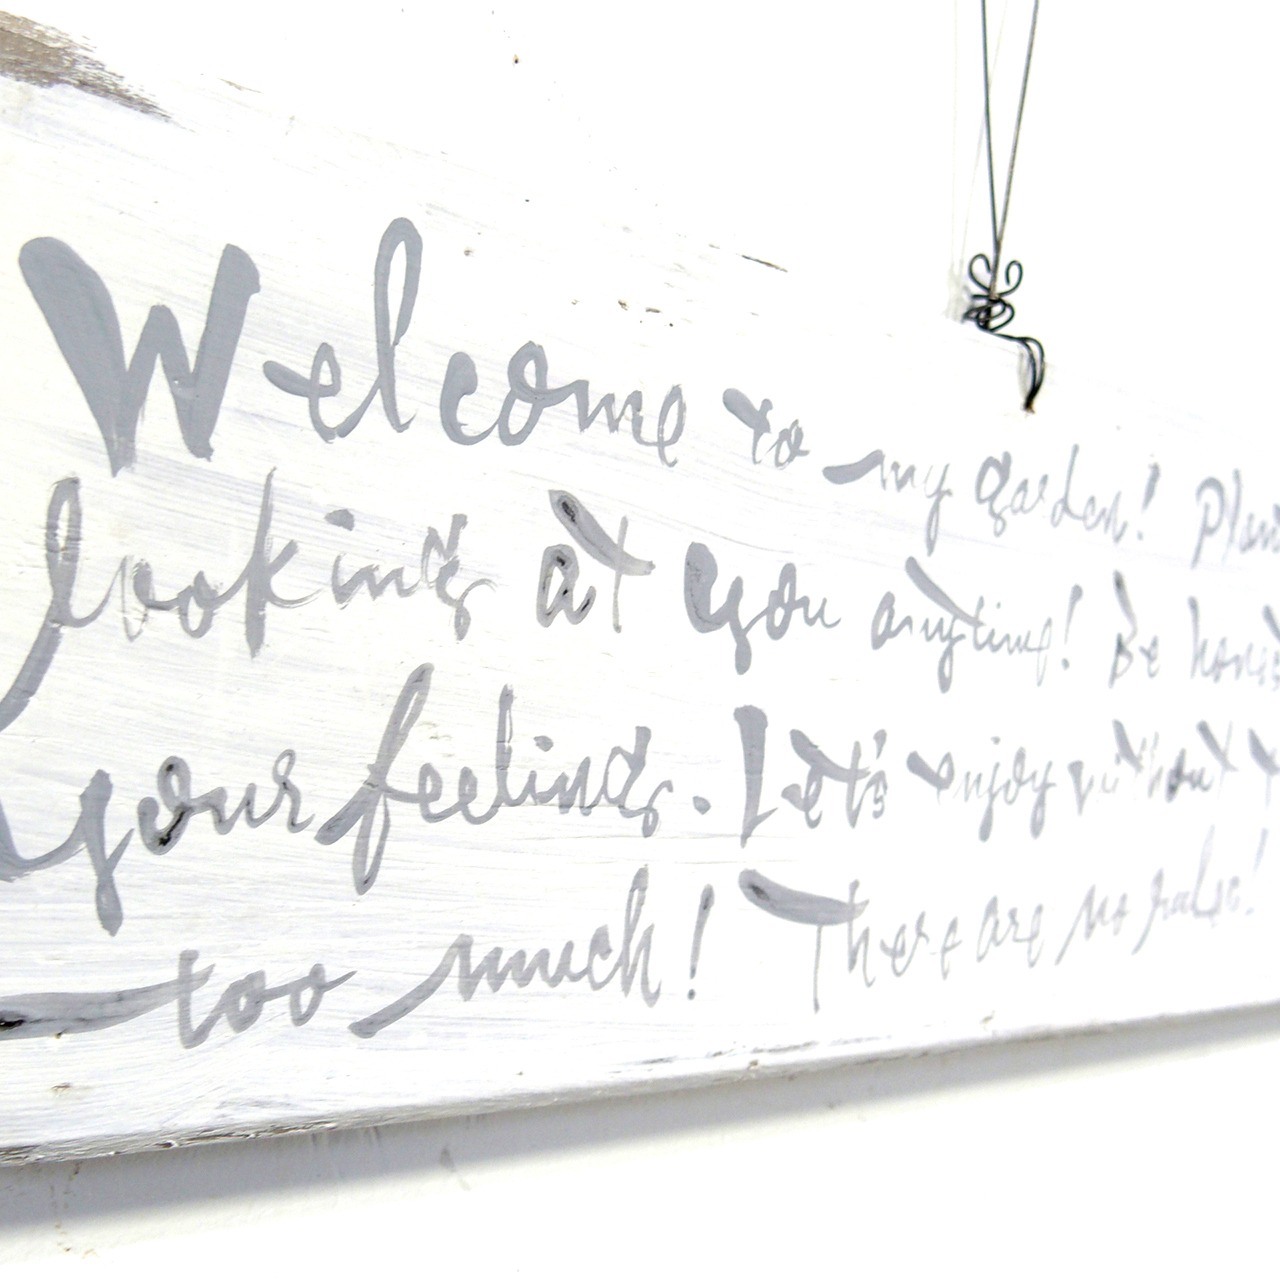 Welcome to my garden!
looking at you anytime! Be
your feelings. Let's enjoy without
too much! There are no rules!